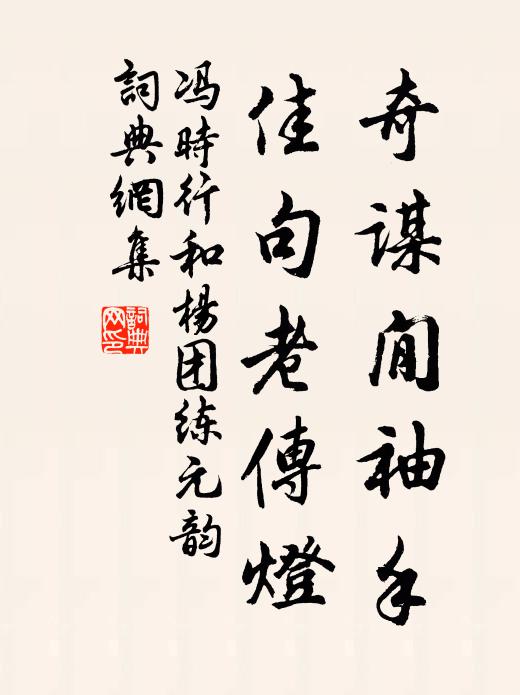 奇謀閒袖手
佳句老傳燈
冯時行和楊团练元韵
詞典網集
詞典
网印